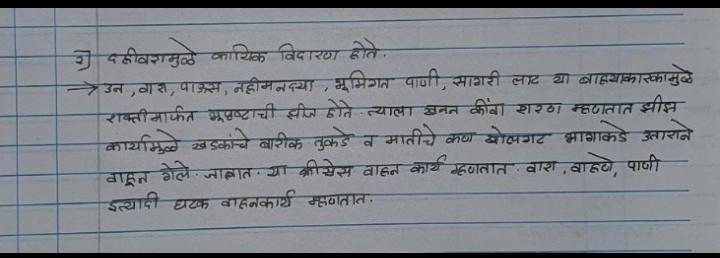 २) दहीवरामुळे कायिक विदारण होते.
→ उन, वारा, पाऊस, नहीमनद्या, भूमिगत पाणी, सागरी लाट या बाहयाकारकामुळे
शक्तीमार्फत भूपृष्टाची झीज होते. त्याला खनन कींवा क्षरण म्हणतात झीझ
कार्यामुळे खडकांचे बारीक तुकडे व मातीचे कण खोलगट भागाकडे उताराने
वाहून गेले. जातात. या क्रीयेस वाहन कार्य म्हणतात. वारा, वाहणे, पाणी
इत्यादी घटक वाहनकार्य म्हणतात.